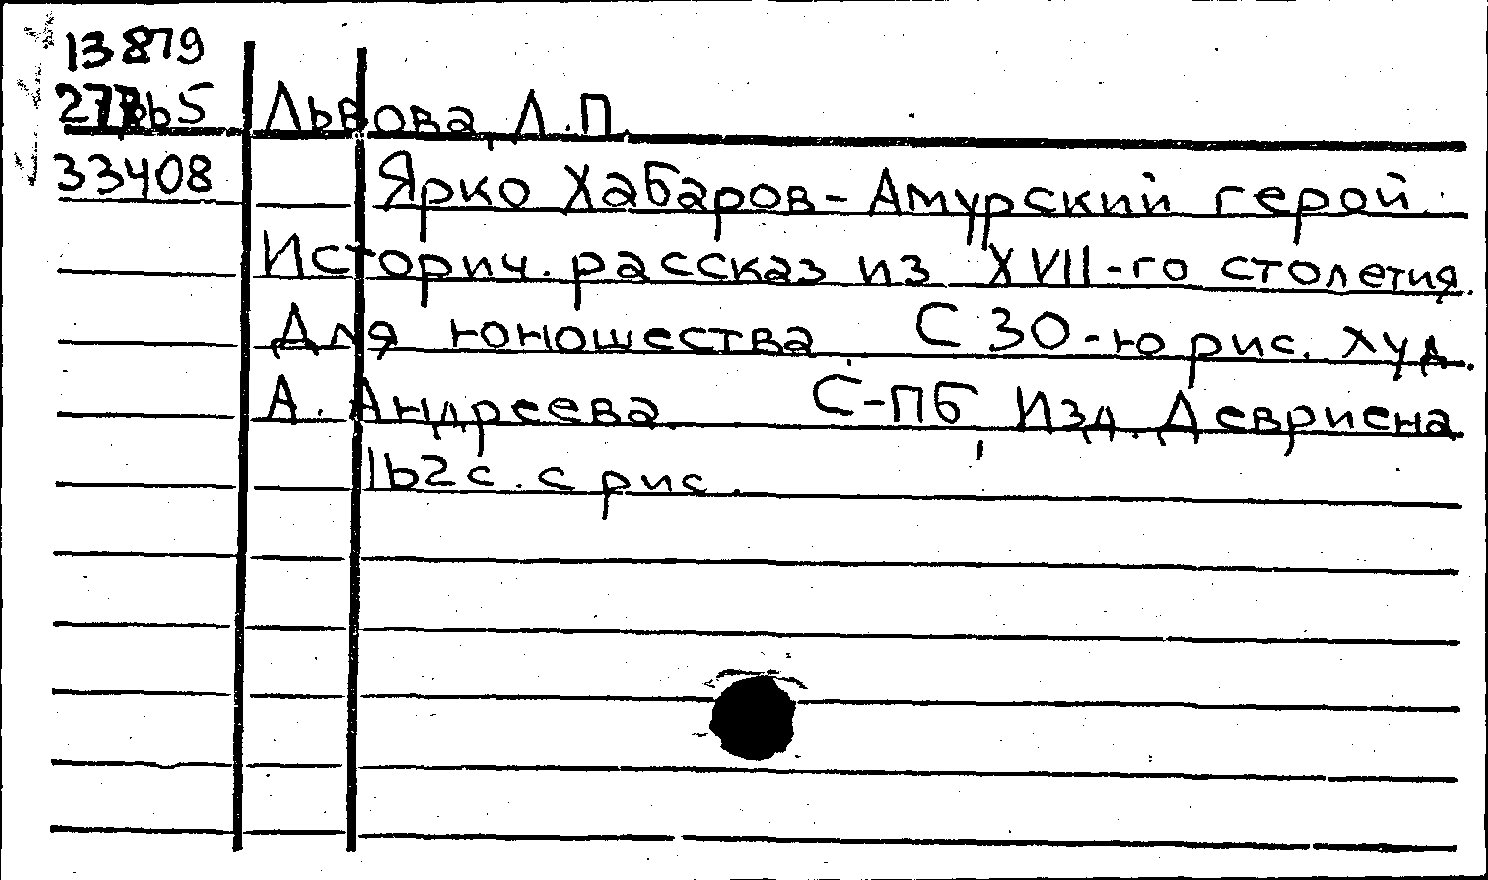 13879
Львова, Л.П.
33408 Ярко Хабаров - Амурский герой.
Историч. рассказ из XVII-го столетия.
Для юношества. С 30-ю рис. худ.
А. Андреева. С-ПБ, Изд. Девриена
162 с. с рис.